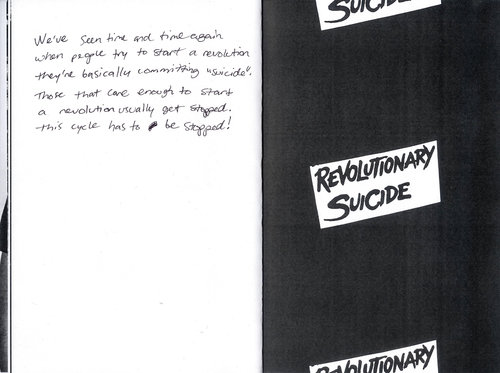 We've seen time and time again
when people try to start a revolution
they're basically committing "suicide".
Those that care enough to start
a revolution usually get stopped.
this cycle has to be stopped!
SUICIDE
REVOLUTIONARY
SUICIDE
REVOLUTIONARY